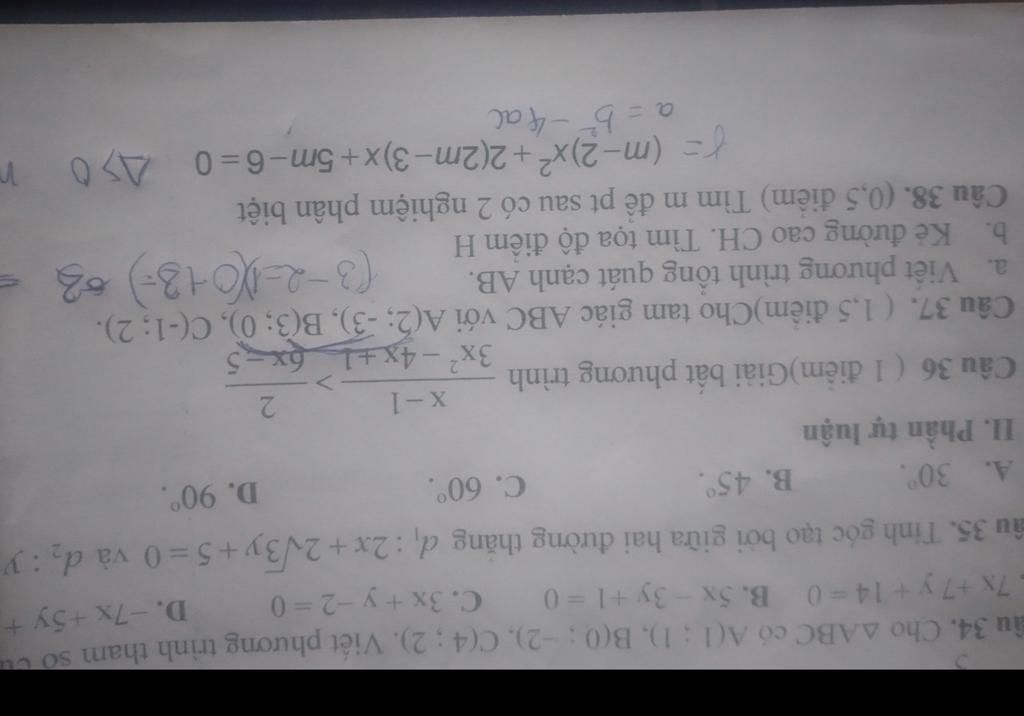 âu 34. Cho Δ ABC có A(1 ; 1), B(0 ; −2), C(4 ; 2). Viết phương trình tham số
7x +7 y + 14 = 0 B. 5x − 3y +1 = 0 C. 3x + y −2 = 0 D. −7x +5y +
âu 35. Tính góc tạo bởi giữa hai đường thẳng d₁ : 2x + 2√3y + 5 = 0 và d₂ : y
A. 30°. B. 45°. C. 60°. D. 90°.
II. Phần tự luận
Câu 36 ( 1 điểm)Giải bất phương trình (x − 1)/(3x² − 4x + 1) > 2/(6x − 5)
Câu 37. ( 1,5 điểm)Cho tam giác ABC với A(2; -3), B(3; 0), C(-1; 2).
a. Viết phương trình tổng quát cạnh AB.
b. Kẻ đường cao CH. Tìm tọa độ điểm H
Câu 38. (0,5 điểm) Tìm m để pt sau có 2 nghiệm phân biệt
(m − 2)x² + 2(2m − 3)x + 5m − 6 = 0 Δ > 0
= b² − 4ac